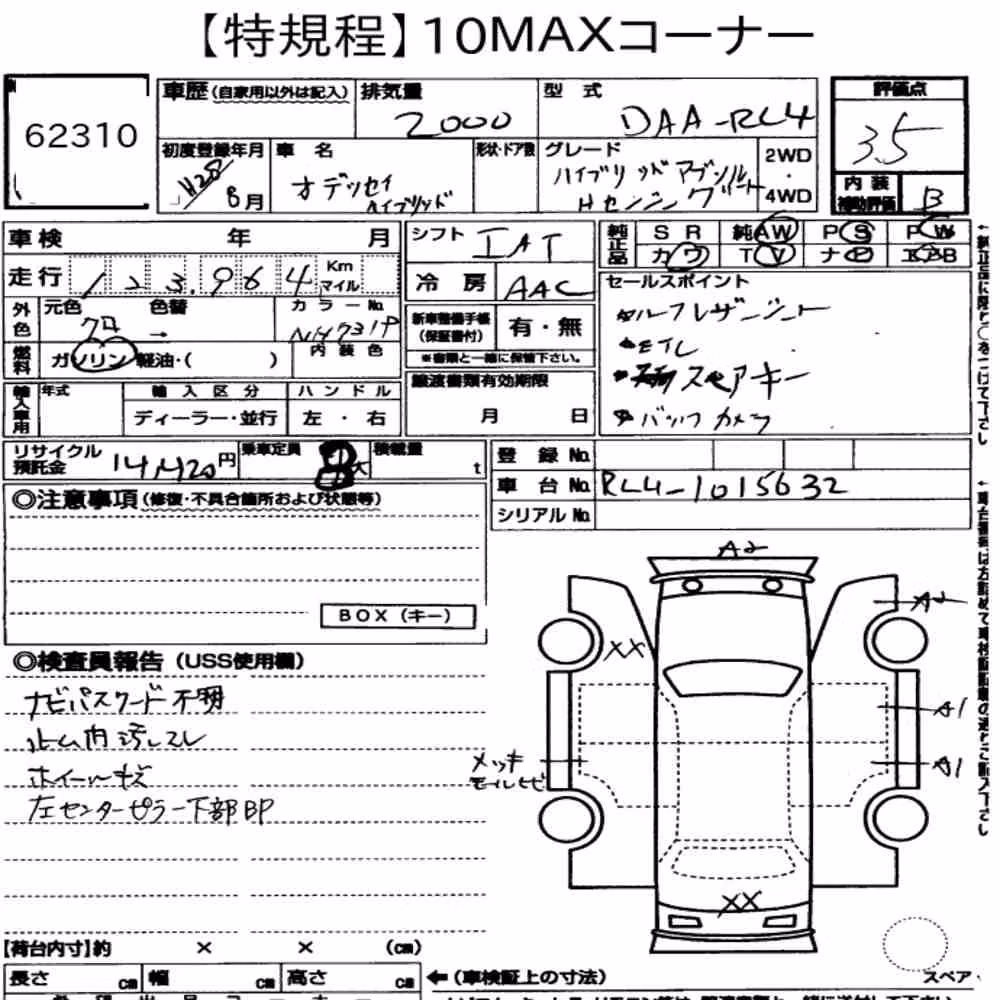 【特規程】10MAXコーナー
62310
車歴(自家用以外は記入) 排気量 型 式 評価点
2000 DAA-RL4 3.5
初度登録年月 車 名 形状・ドア数 グレード 2WD・4WD
H28 8月 オデッセイ ハイブリッド ハイブリッド アブソルート Hセンシング
内装補助評価 B
車検 年 月 シフト IAT
純正品 SR 純AW PS PW
カワ TV ナビ エアB
走行 123,964 Km マイル 冷房 AAC
セールスポイント
外色 元色 色替 カラーNo.
クロ → NH731P
新車整備手帳(保証書付) 有・無
ハーフレザーシート
燃料 ガソリン 軽油・( ) 内装色
※書類と一緒に保管下さい。
ETC
スペアキー
バックカメラ
輸入車用 年式 輸入区分 ハンドル
ディーラー・並行 左・右
譲渡書類有効期限
月 日
リサイクル預託金 14,420円 乗車定員 8人 積載量 t
登録 No.
車台 No. RL4-1015632
シリアル No.
◎注意事項(修復・不具合箇所および状態等)
BOX(キー)
◎検査員報告(USS使用欄)
ナビパスワード不明
内汚レスレ
ホイールキズ
左センターピラー下部BP
A2
A2
XX
A1
A1
メッキモールヒビ
XX
【荷台内寸】約 × × (cm)
長さ cm 幅 cm 高さ cm ←(車検証上の寸法)
スペア